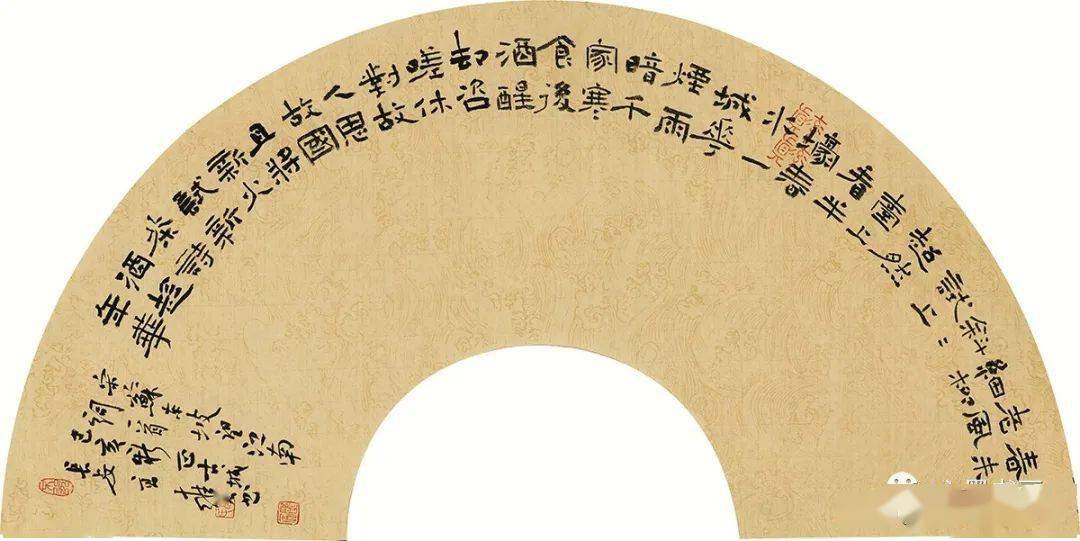 春未
老風
細柳
斜〻
試上
超然
臺上
看半
壕春
水一
城華
煙雨
暗千
家寒
食後
酒醒
却咨
嗟休
對故
人思
故國
且將
新火
試新
茶詩
酒趁
年華
宋蘇東坡望江南
詞一首
己亥新正古城